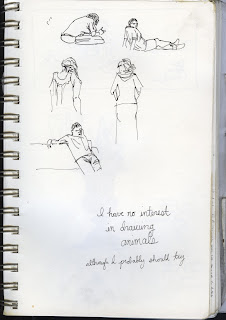 I have no interest
in drawing
animals
although I probably should try